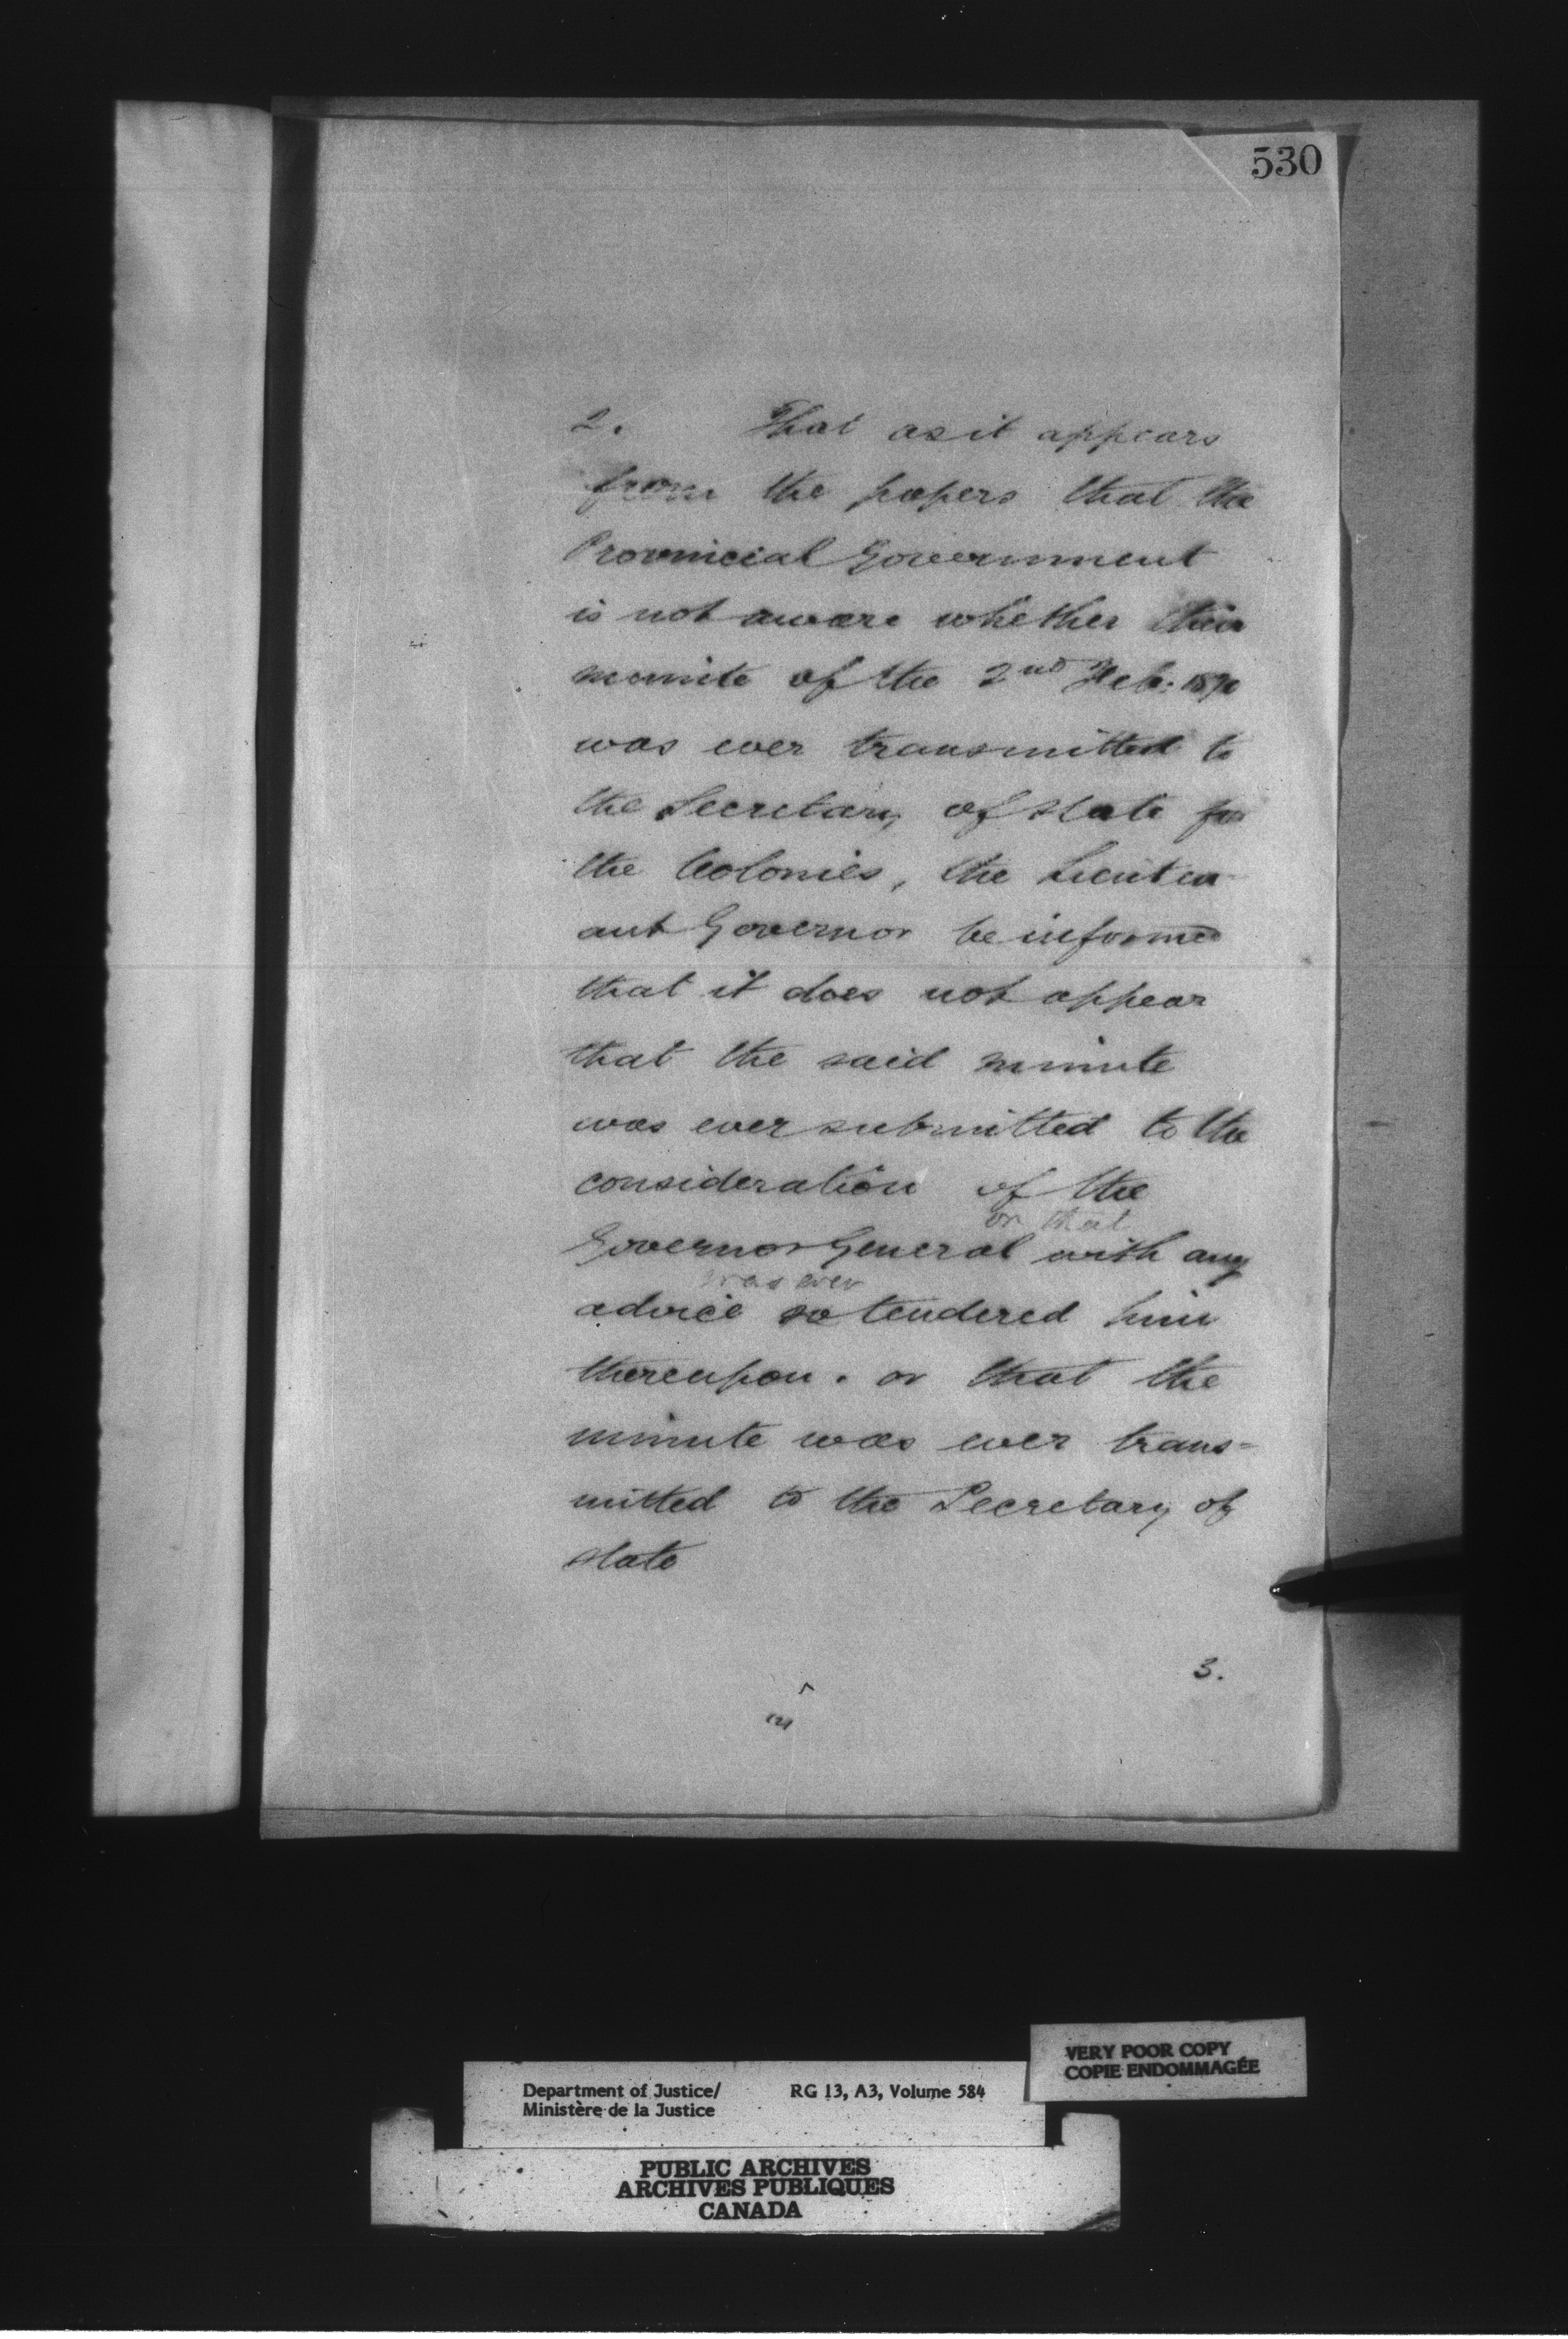 530
2. That as it appears
from the papers that the
Provincial Government
is not aware whether their
minute of the 2nd Feb:
was ever transmitted to
the Secretary of State for
the Colonies, the Lieuten-
ant Governor be informed
that it does not appear
that the said minute
was ever submitted to the
consideration of the
or that
Governor General with any
was ever
advice so tendered him
thereupon. or that the
minute was ever trans=
mitted to the Secretary of
State
3.
Department of Justice/ RG 13, A3, Volume 584
Ministère de la Justice
VERY POOR COPY
COPIE ENDOMMAGÉE
PUBLIC ARCHIVES
ARCHIVES PUBLIQUES
CANADA